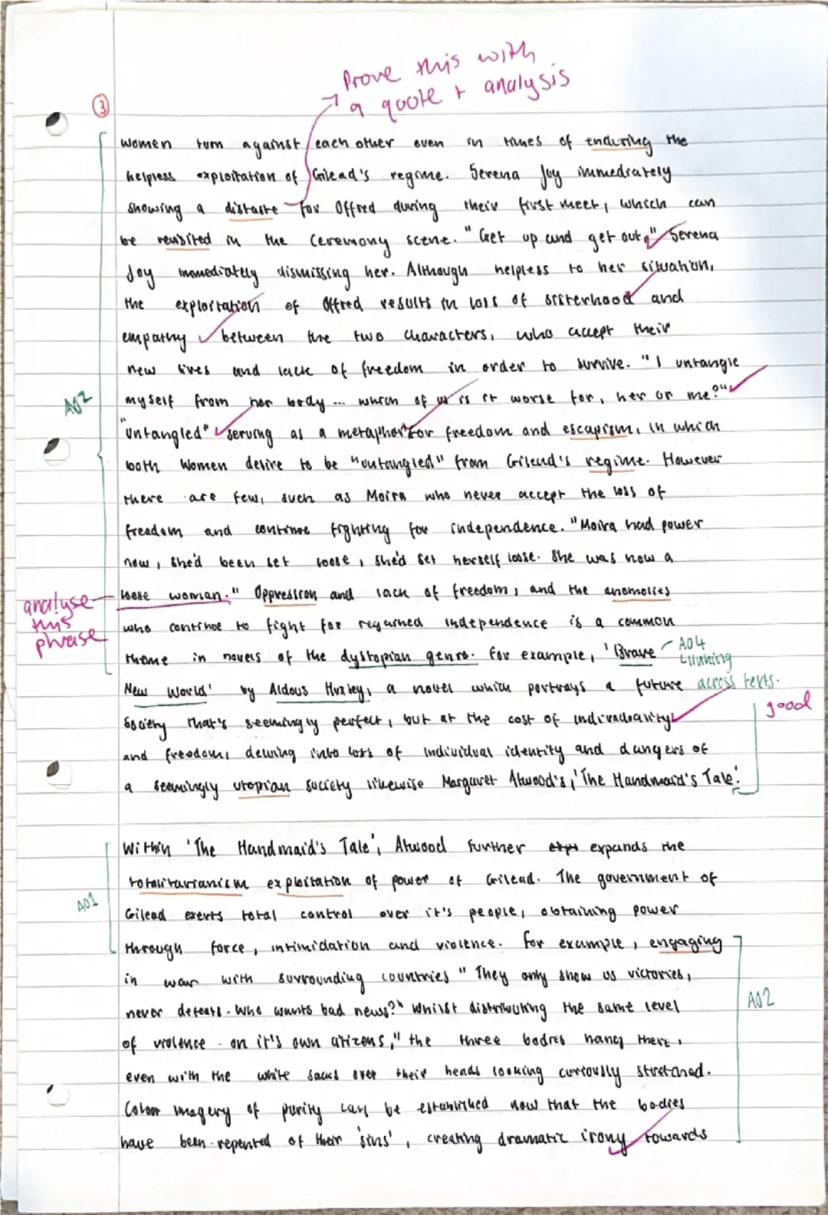 Prove this with
a quote + analysis
3
Women turn against each other even in times of enduring the
helpless exploitation of Gilead's regime. Serena Joy immediately
showing a distaste for Offred during their first meet, which can
be revisited in the Ceremony scene. "Get up and get out," Serena
Joy immediately dismissing her. Although helpless to her situation,
the exploitation of Offred results in loss of sisterhood and
empathy between the two characters, who accept their
new lives and lack of freedom in order to survive. "I untangle
AO2
myself from her body... which of us is it worse for, her or me?"
"Untangled" serving as a metaphor for freedom and escapism, in which
both women desire to be "untangled" from Gilead's regime. However
there are few, such as Moira who never accept the loss of
freedom and continue fighting for independence. "Moira had power
now, she'd been set loose, she'd set herself loose. She was now a
analyse
this
phrase
loose woman." Oppression and lack of freedom, and the anomolies
who continue to fight for regained independence is a common
theme in novels of the dystopian genre. For example, 'Brave
AO4
Linking
across texts.
New World' by Aldous Huxley, a novel which portrays a future
good
society that's seemingly perfect, but at the cost of
and freedom, delving into loss of individual identity and dangers of
a seemingly utopian society likewise Margaret Atwood's, 'The Handmaid's Tale'.
Within 'The Handmaid's Tale', Atwood further expands the
totalitarianism exploitation of power of Gilead. The government of
AO1
Gilead exerts total control over it's people, obtaining power
through force, intimidation and violence. For example, engaging
in war with surrounding countries "They only show us victories,
AO2
never defeats. Who wants bad news?" Whilst distributing the same level
of violence on it's own citizens, "the three bodies hang there,
even with the white sacks over their heads looking curiously stretched.
Colour imagery of purity can be established now that the bodies
have been repented of their 'sins', creating dramatic irony towards